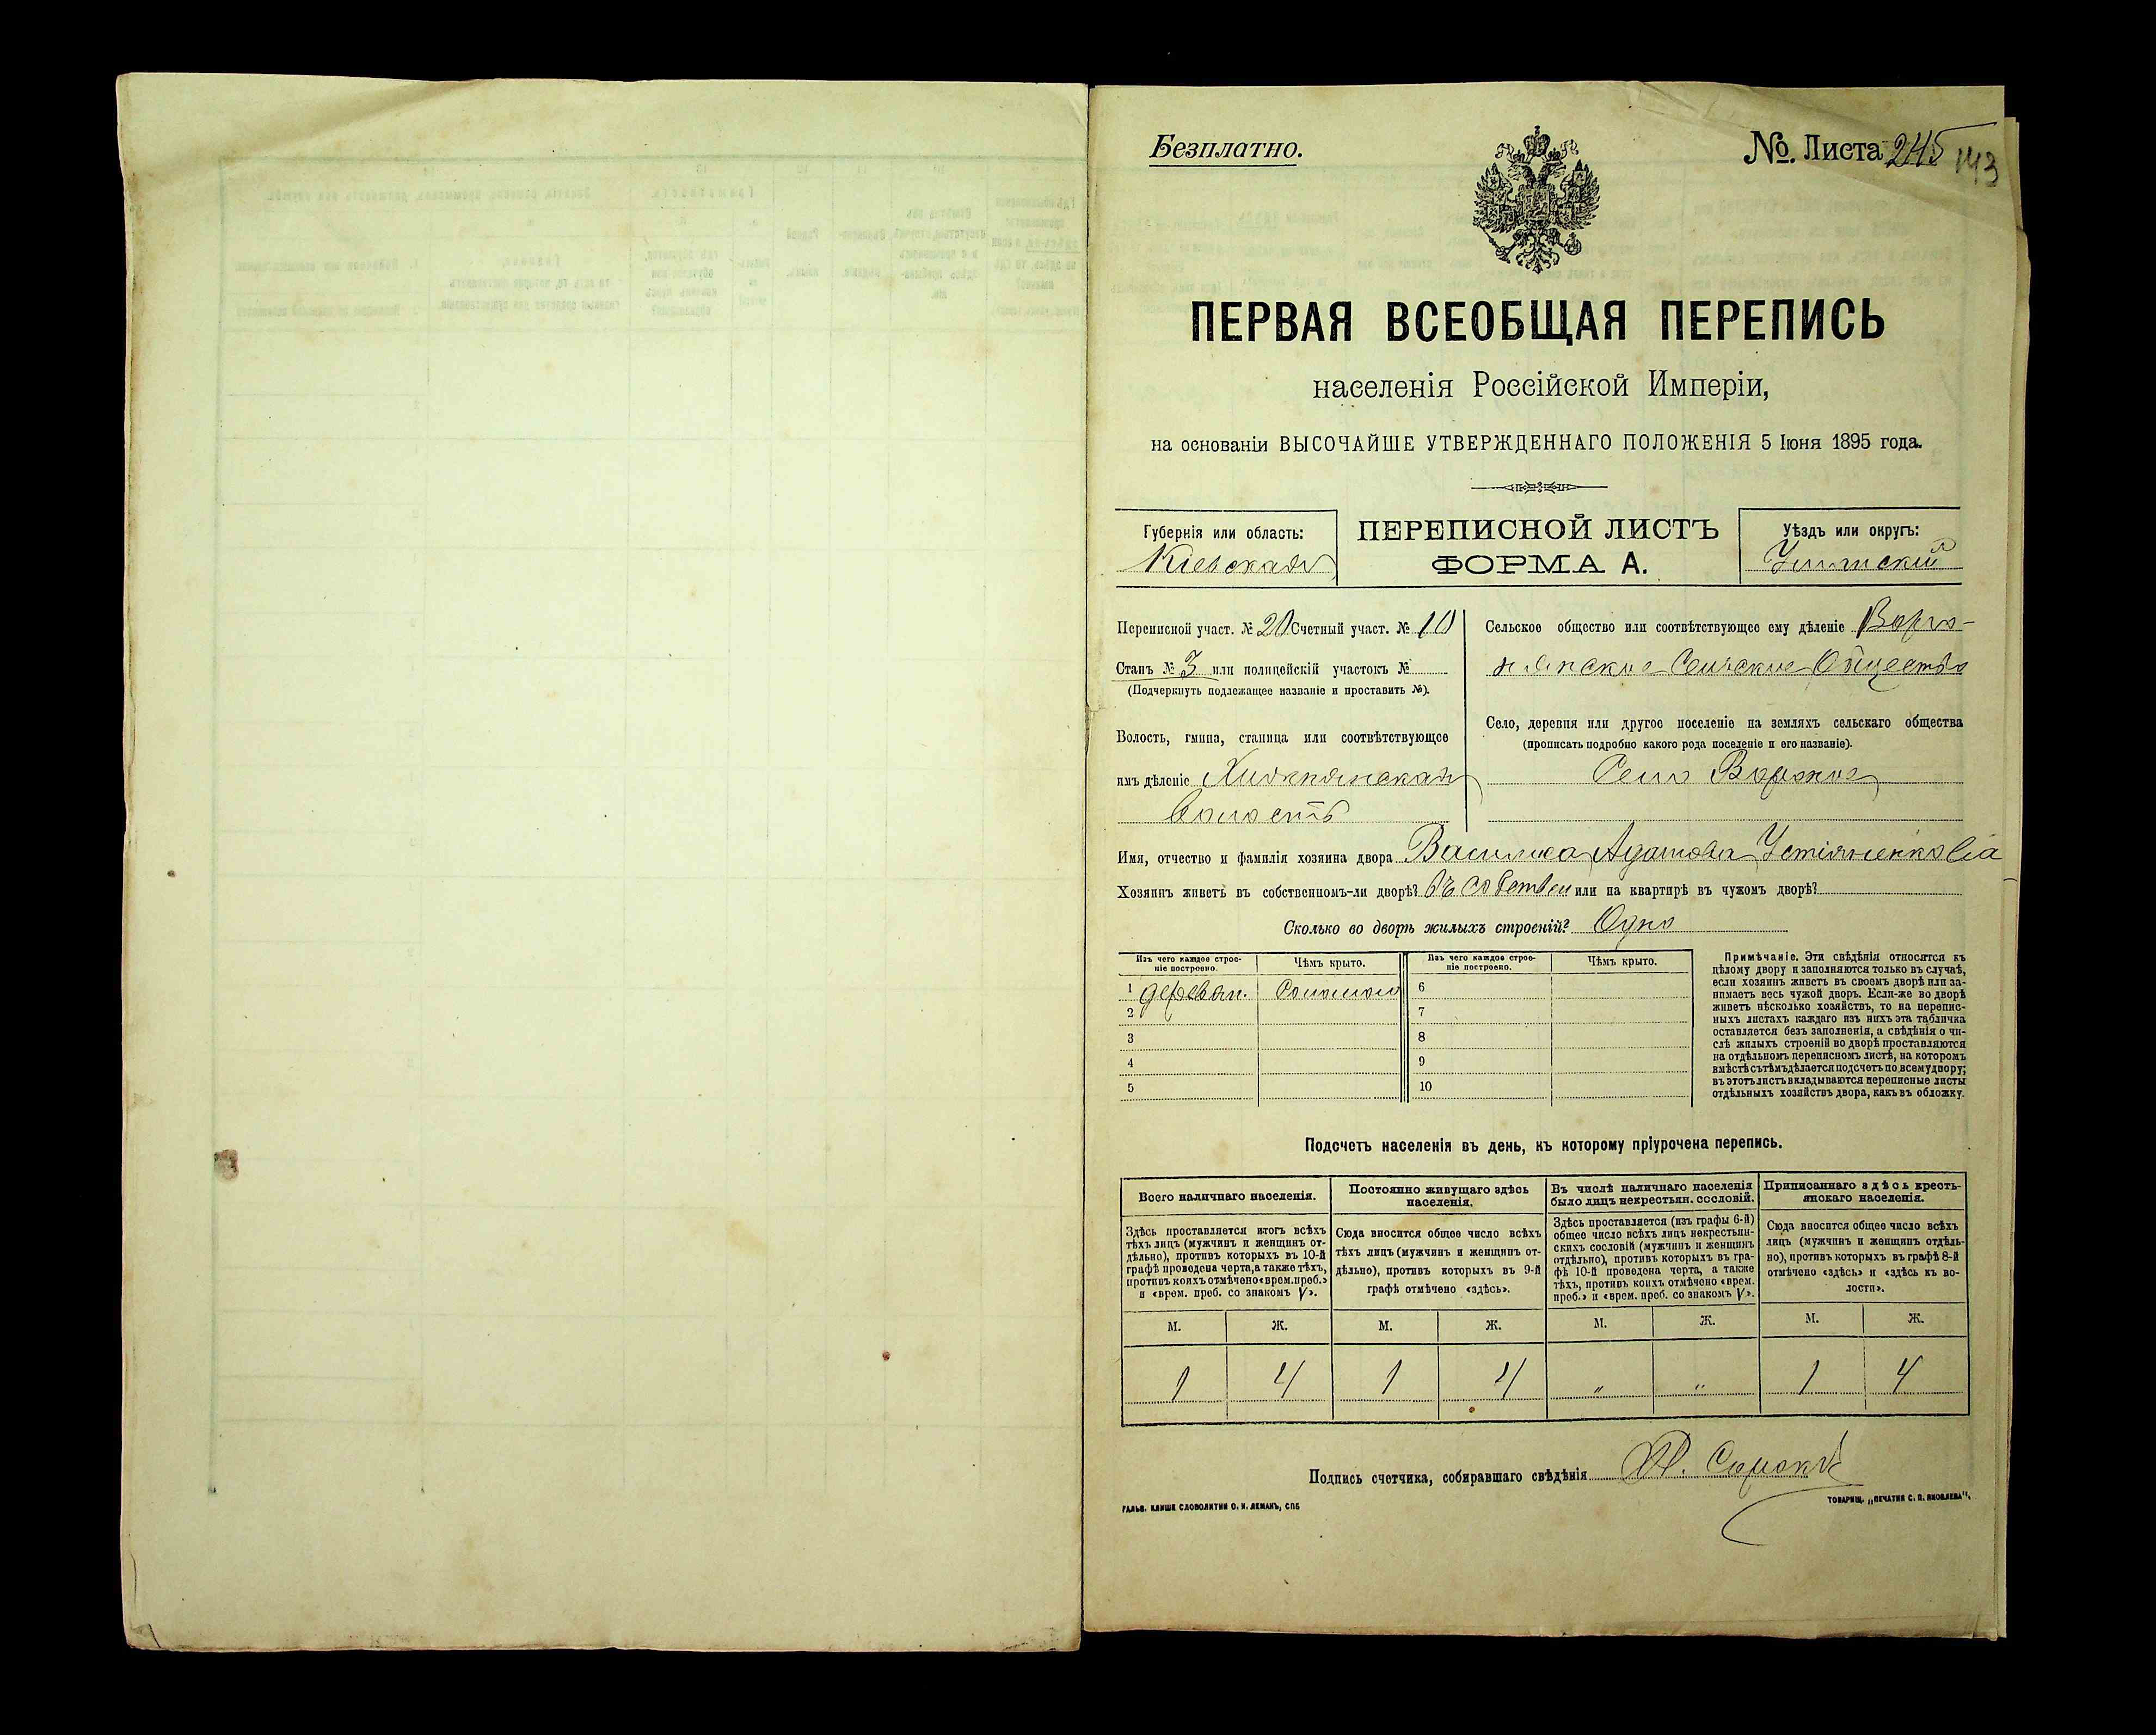 Безплатно.
№. Листа 245 143
ПЕРВАЯ ВСЕОБЩАЯ ПЕРЕПИСЬ
населенія Россійской Имперіи,
на основаніи ВЫСОЧАЙШЕ УТВЕРЖДЕННАГО ПОЛОЖЕНІЯ 5 Іюня 1895 года.
Губернія или область:
Кіевская
ПЕРЕПИСНОЙ ЛИСТЪ
ФОРМА А.
Уѣздъ или округъ:
Переписной участ. № 20 Счетный участ. № 10
Станъ № 3 или полицейскій участокъ №
(Подчеркнуть подлежащее названіе и проставить №).
Волость, гмина, станица или соотвѣтствующее
имъ дѣленіе
Волость
Сельское общество или соотвѣтствующее ему дѣленіе
Сельское Общество
Село, деревня или другое поселеніе на земляхъ сельскаго общества
(прописать подробно какого рода поселеніе и его названіе).
Село
Имя, отчество и фамилія хозяина двора Василиса Адамова
Хозяинъ живетъ въ собственномъ-ли дворѣ? въ собствен или на квартирѣ въ чужомъ дворѣ?
Сколько во дворѣ жилыхъ строеній? Одно
Изъ чего каждое строе-
ніе построено.
Чѣмъ крыто.
Изъ чего каждое строе-
ніе построено.
Чѣмъ крыто.
1 деревян. Соломою 6
2 7
3 8
4 9
5 10
Примѣчаніе. Эти свѣдѣнія относятся къ
цѣлому двору и заполняются только въ случаѣ,
если хозяинъ живетъ въ своемъ дворѣ или за-
нимаетъ весь чужой дворъ. Если-же во дворѣ
живетъ нѣсколько хозяйствъ, то на перепис-
ныхъ листахъ каждаго изъ нихъ эта табличка
оставляется безъ заполненія, а свѣдѣнія о чи-
слѣ жилыхъ строеній во дворѣ проставляются
на отдѣльномъ переписномъ листѣ, на которомъ
вмѣстѣ съ тѣмъ дѣлается подсчетъ по всему двору;
въ этотъ листъ вкладываются переписные листы
отдѣльныхъ хозяйствъ двора, какъ въ обложку.
Подсчетъ населенія въ день, къ которому пріурочена перепись.
Всего наличнаго населенія.
Здѣсь проставляется итогъ всѣхъ
тѣхъ лицъ (мужчинъ и женщинъ от-
дѣльно), противъ которыхъ въ 10-й
графѣ проведена черта, а также тѣхъ,
противъ коихъ отмѣчено «врем. преб.»
и «врем. преб. со знакомъ V».
Постоянно живущаго здѣсь
населенія.
Сюда вносится общее число всѣхъ
тѣхъ лицъ (мужчинъ и женщинъ от-
дѣльно), противъ которыхъ въ 9-й
графѣ отмѣчено «здѣсь».
Въ числѣ наличнаго населенія
было лицъ некрестьян. сословій.
Здѣсь проставляется (изъ графы 6-й)
общее число всѣхъ лицъ некрестьян-
скихъ сословій (мужчинъ и женщинъ
отдѣльно), противъ которыхъ въ гра-
фѣ 10-й проведена черта, а также
тѣхъ, противъ коихъ отмѣчено «врем.
преб.» и «врем. преб. со знакомъ V».
Приписаннаго здѣсь кресть-
янскаго населенія.
Сюда вносится общее число всѣхъ
лицъ (мужчинъ и женщинъ отдѣль-
но), противъ которыхъ въ графѣ 8-й
отмѣчено «здѣсь» и «здѣсь къ во-
лости».
М. Ж. М. Ж. М. Ж. М. Ж.
1 4 1 4 " " 1 4
Подпись счетчика, собиравшаго свѣдѣнія
ГАЛЬВ. КЛИШЕ СЛОВОЛИТНИ О. И. ЛЕМАНЪ, СПБ
ТОВАРИЩ. „ПЕЧАТНЯ С. П. ЯКОВЛЕВА".